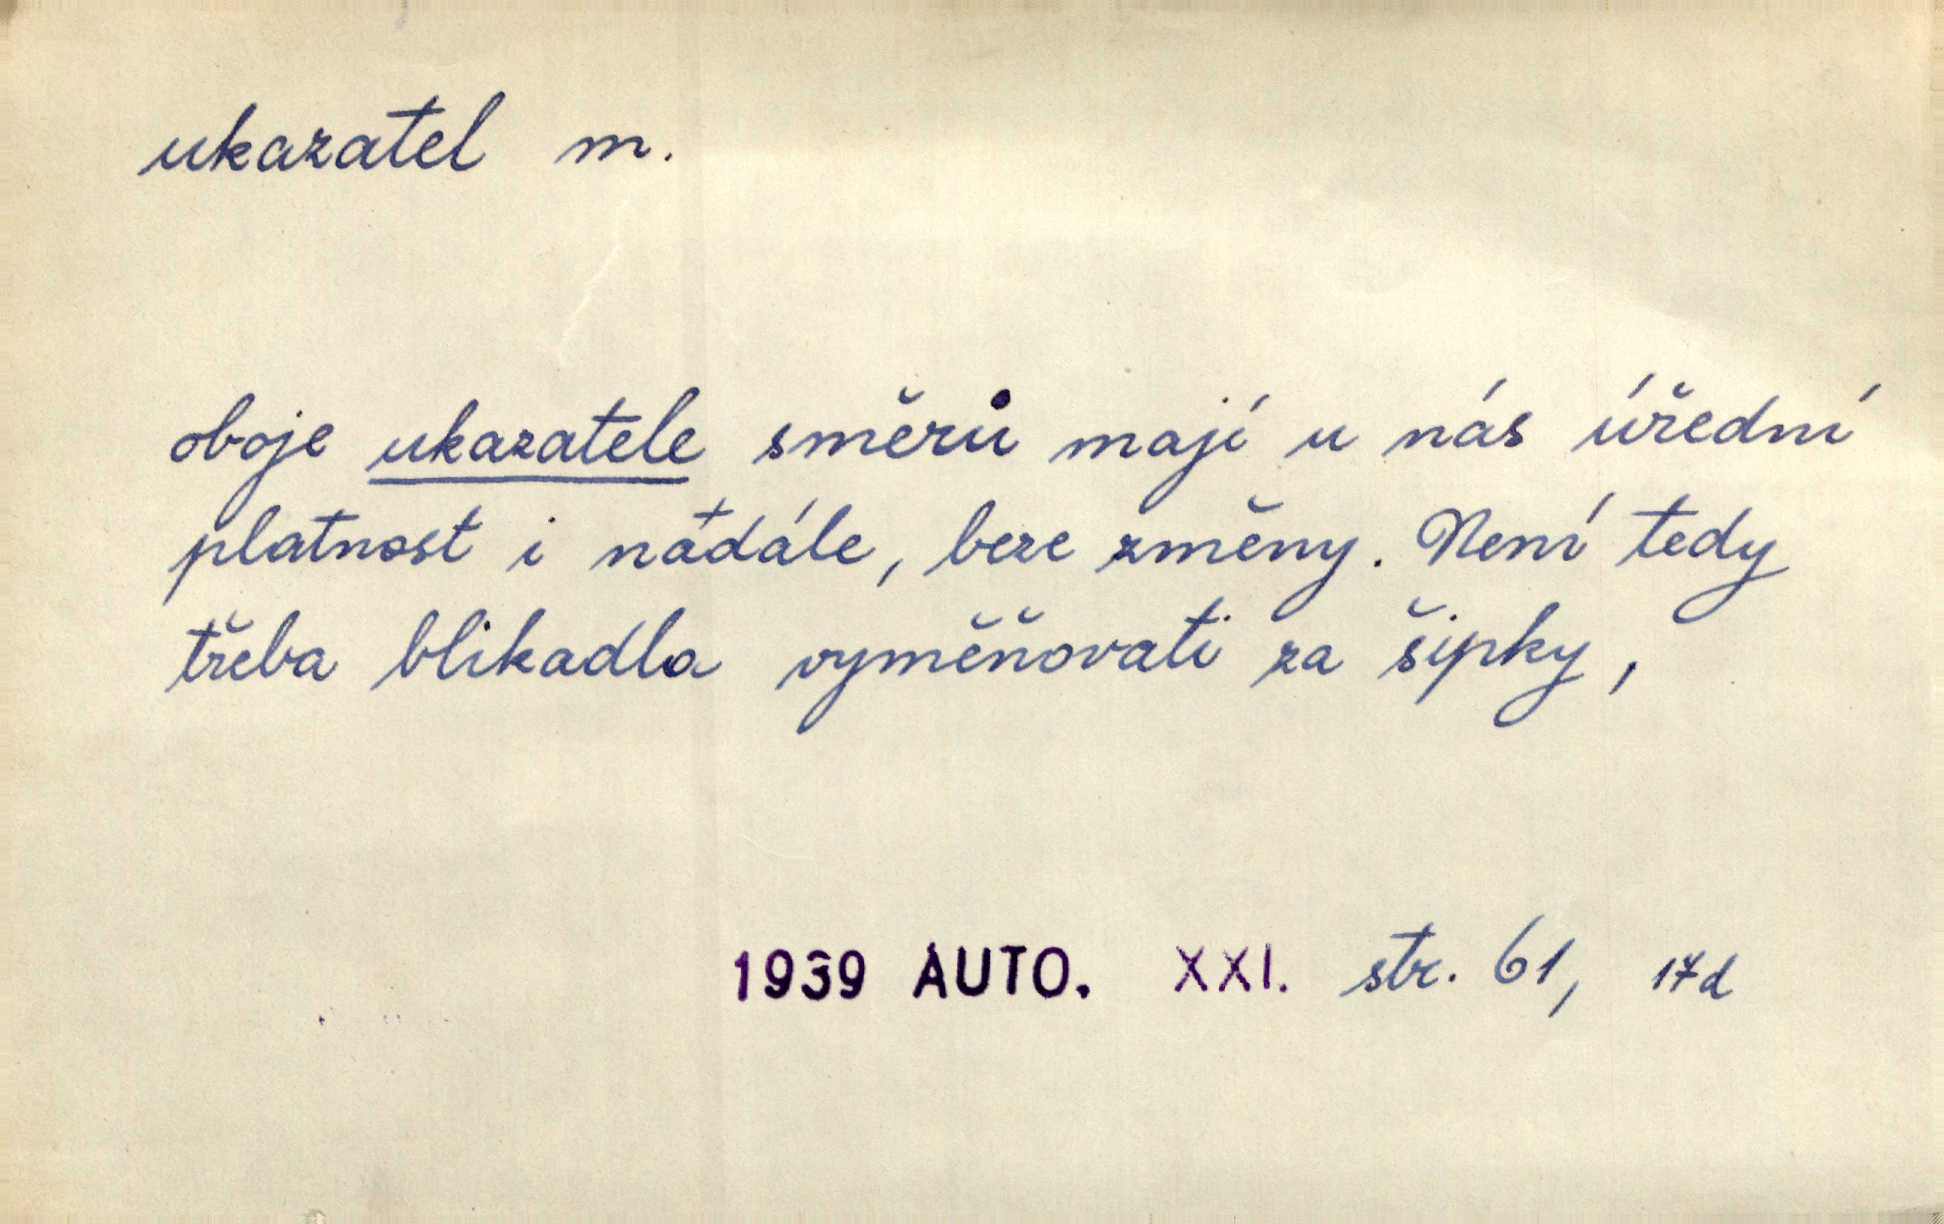 ukazatel m.
oboje ukazatele směrů mají u nás úřední
platnost i nadále, beze změny. Není tedy
třeba blikadla vyměňovati za šipky,
1939 AUTO. XXI. str. 61, 17d